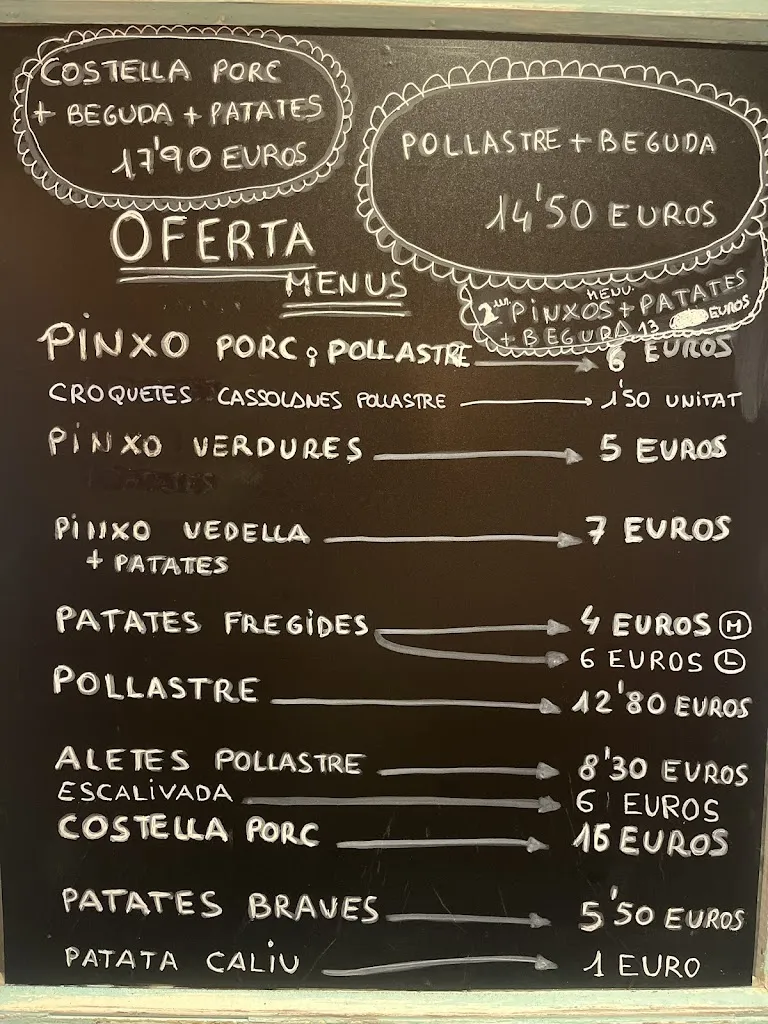 COSTELLA PORC
+ BEGUDA + PATATES
17'90 EUROS
POLLASTRE + BEGUDA
14'50 EUROS
OFERTA
MENUS
MENU
PINXOS + PATATES
+ BEGUDA 13 EUROS
PINXO PORC o POLLASTRE 6 EUROS
CROQUETES CASSOLANES POLLASTRE 1'50 UNITAT
PINXO VERDURES 5 EUROS
PINXO VEDELLA 7 EUROS
+ PATATES
PATATES FREGIDES 4 EUROS M
6 EUROS L
POLLASTRE 12'80 EUROS
ALETES POLLASTRE 8'30 EUROS
ESCALIVADA 6 EUROS
COSTELLA PORC 16 EUROS
PATATES BRAVES 5'50 EUROS
PATATA CALIU 1 EURO